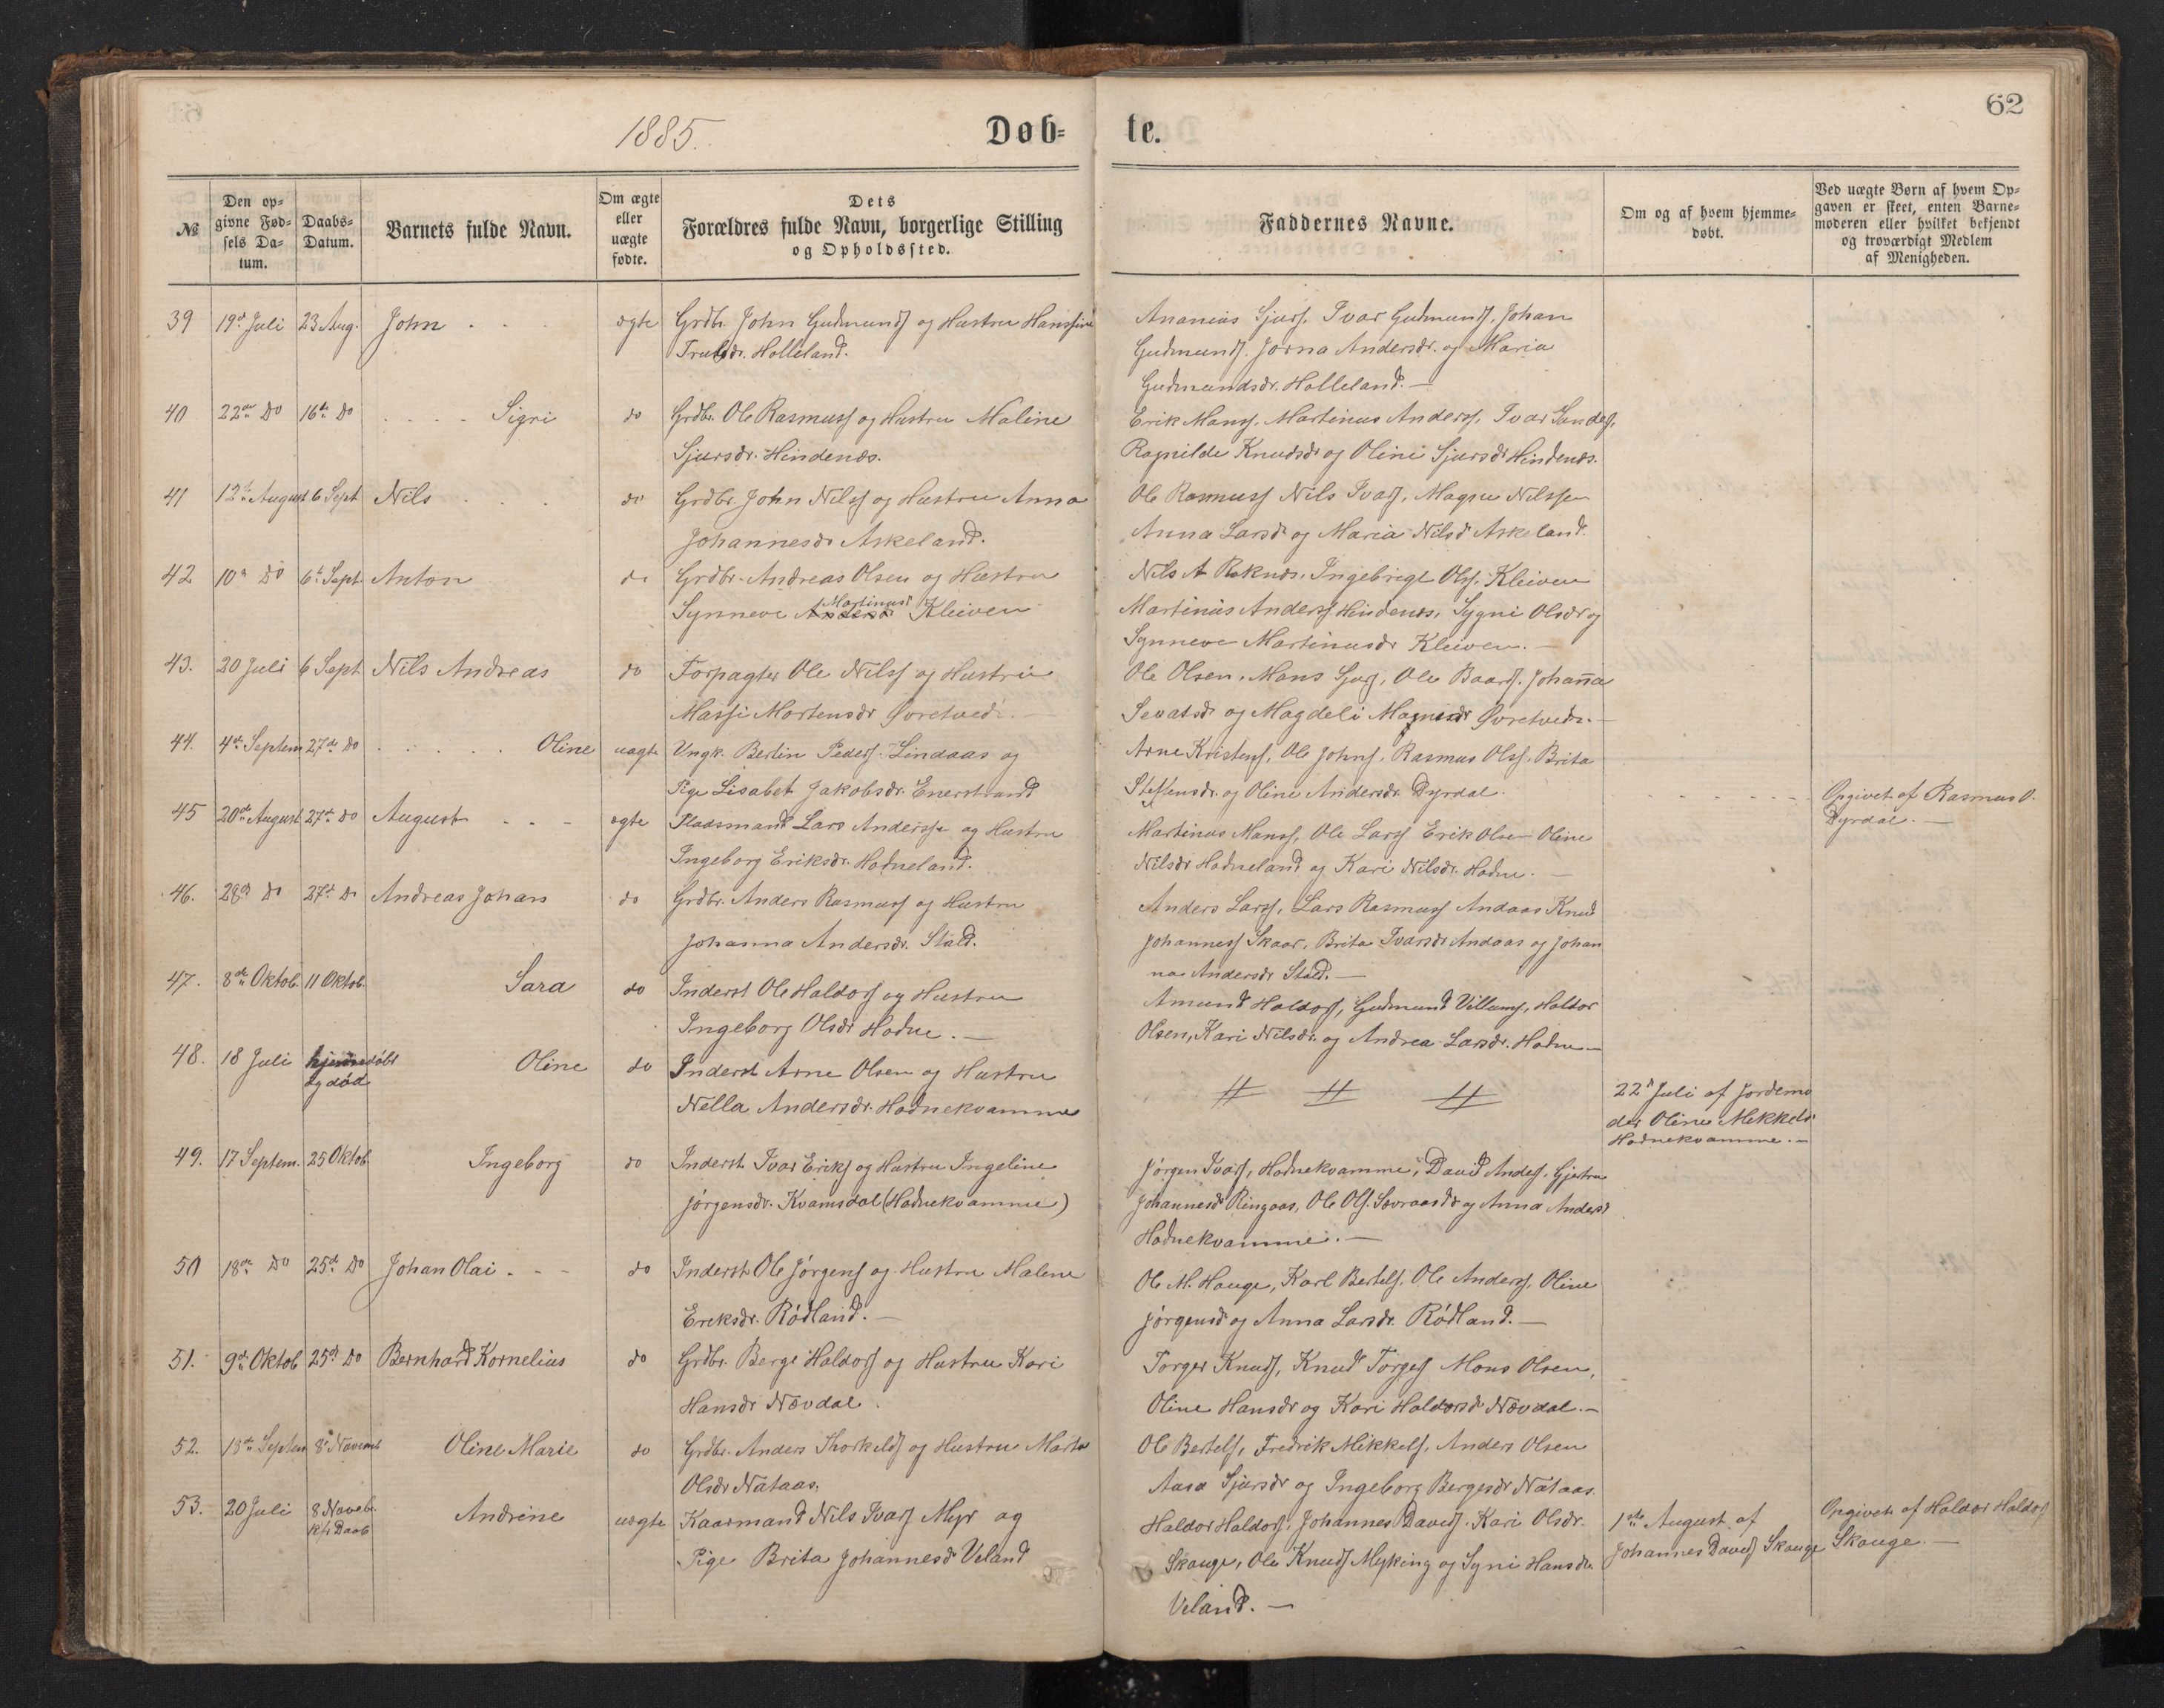 62
1885.
Døb-
te.
№
Den op-
givne Fød-
sels Da-
tum.
Daabs-
Datum.
Barnets fulde Navn.
Om ægte
eller
uægte
fødte.
Dets
Forældres fulde Navn, borgerlige Stilling
og Opholdssted.
Faddernes Navne.
Om og af hvem hjemme-
døbt.
Ved uægte Børn af hvem Op-
gaven er skeet, enten Barne-
moderen eller hvilket bekjendt
og troværdigt Medlem
af Menigheden.
39 19de Juli 23 Aug. John ægte Grdbr. John Gudmunds og Hustru Hansine
Trulsdr. Holleland.
Ananias Sjurs. Ivar Gudmunds. Johan
Gudmunds. Jorna Andersdr. og Maria
Gudmundsdr. Holleland. —
40 22de do 16de do Sigri do Grdbr. Ole Rasmuss og Hustru Maline
Sjursdr. Hindenes.
Erik Mons. Martinus Anders. Ivar
Ragnilde Knudsdr og Olini Sjursdr Hindenes.
41 12te August 6 Sept Nils do Grdbr. John Nilss og Hustru Anna
Johannesdr Askeland.
Ole Rasmuss Nils Ivars, Magne Nilssen
Anna Larsd og Maria Nilsd Askeland.
42 10de do 6te Sept Anton do Grdbr. Andreas Olsen og Hustru
Synneve Andersd Martinusd Kleiven
Nils A Roknes. Ingebrigt Ols. Kleiven
Martinus Anderss Hindenes, Sygni Olsdr og
Synneve Martinusdr Kleiven. —
43. 20 Juli 6 Sept Nils Andreas do Forpagter Ole Nilss og Hustru
Massi Mortensdr Øvretved. —
Ole Olsen, Mons Sjurs, Ole Baards. Johanna
Sevatsd og Magdeli Magnesdr Øvretveds. —
44. 4de Septem 27de do Oline uægte Ungk. Bertin Peders. Lindaas og
Pige Lisabet Jakobsdr. Enerstrand
Arne Kristens, Ole Johns, Rasmus Olss. Brita
Steffensdr. og Oline Andersdr. Dyrdal.
Opgivet af Rasmus O.
Dyrdal. —
45 20de August 27de do August ægte Pladsmand Lars Anderss og Hustru
Ingeborg Eriksdr. Hodneland.
Martinus Mons, Ole Larss Erik Olsen Oline
Nilsdr Hodneland og Kari Nilsdr. Hodne. —
46. 28de do 27de do Andreas Johan do Grdbr. Anders Rasmuss og Hustru
Johanna Andersdr. Stald.
Anders Larss, Lars Rasmuss Andaas Knud
Johanness Skaar, Brita Ivarsdr Andaas og Johan
na Andersdr Stald. —
47. 8de Oktob. 11 Oktob. Sara do Inderst Ole Haldors og Hustru
Ingeborg Olsdr Hodne. —
Amund Haldors, Gudmund Villums, Haldor
Olsen, Kari Nilsdr. og Andrea Larsdr. Hodne —
48. 18 Juli hjemmedøbt
og død
Oline do Inderst Arne Olsen og Hustru
Nella Andersdr. Hodnekvamme
22d Juli af Jordemo
der Oline Mikkelsd
Hodnekvamme. —
49. 17 Septem. 25 Oktob. Ingeborg do Inderst Ivar Eriks og Hustru Ingeline
Jørgensdr. Kvamsdal (Hodnekvamme)
Jørgen Ivars, Hodnekvamme, David Anders. Gjertru
Johannesd Ringaas, Ole Ols. og Anna Andersd
Hodnekvamme. —
50 18de do 25de do Johan Olai do Inderst Ole Jørgens og Hustru Malene
Eriksdr. Rødland. —
Ole M. Hauge, Karl Bertels, Ole Anders, Oline
Jørgensd og Anna Larsdr. Rødland. —
51. 9de Oktob 25de do Bernhard Kornelius do Grdbr. Berge Haldors og Hustru Kari
Hansdr Nævdal.
Torger Knuds, Knud Torgers Mons Olsen,
Oline Hansdr og Kari Haldorsd Nævdal. —
52. 18de Septem 8de Novemb Oline Marie do Grdbr. Anders Thorkelds og Hustru Marta
Olsdr Nataas.
Ole Bertels, Fredrik Mikkels, Anders Olsen
Aasa Sjursdr og Ingeborg Bergesdr Nataas.
53. 20 Juli 8 Noveb.
Daab
Andrine uægte Kaarmand Nils Ivars Myr og
Pige Brita Johannesdr Veland
Haldor Haldors, Johannes Davids. Kari Olsdr.
Skauge, Ole Knuds Myking og Syni Hansdr.
Veland. —
1ste August af
Johannes Davids Skauge
Opgivet af Haldor Haldors
Skauge. —